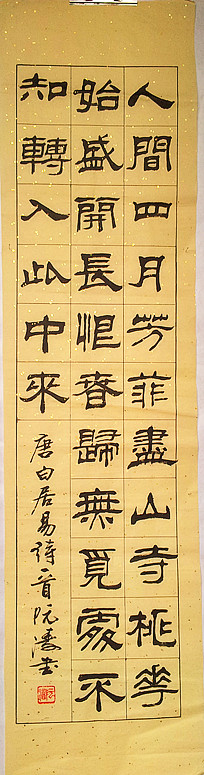 人間四月芳菲盡山寺桃花
始盛開長恨春歸無覓處不
知轉入此中來
唐白居易詩一首阮濤書